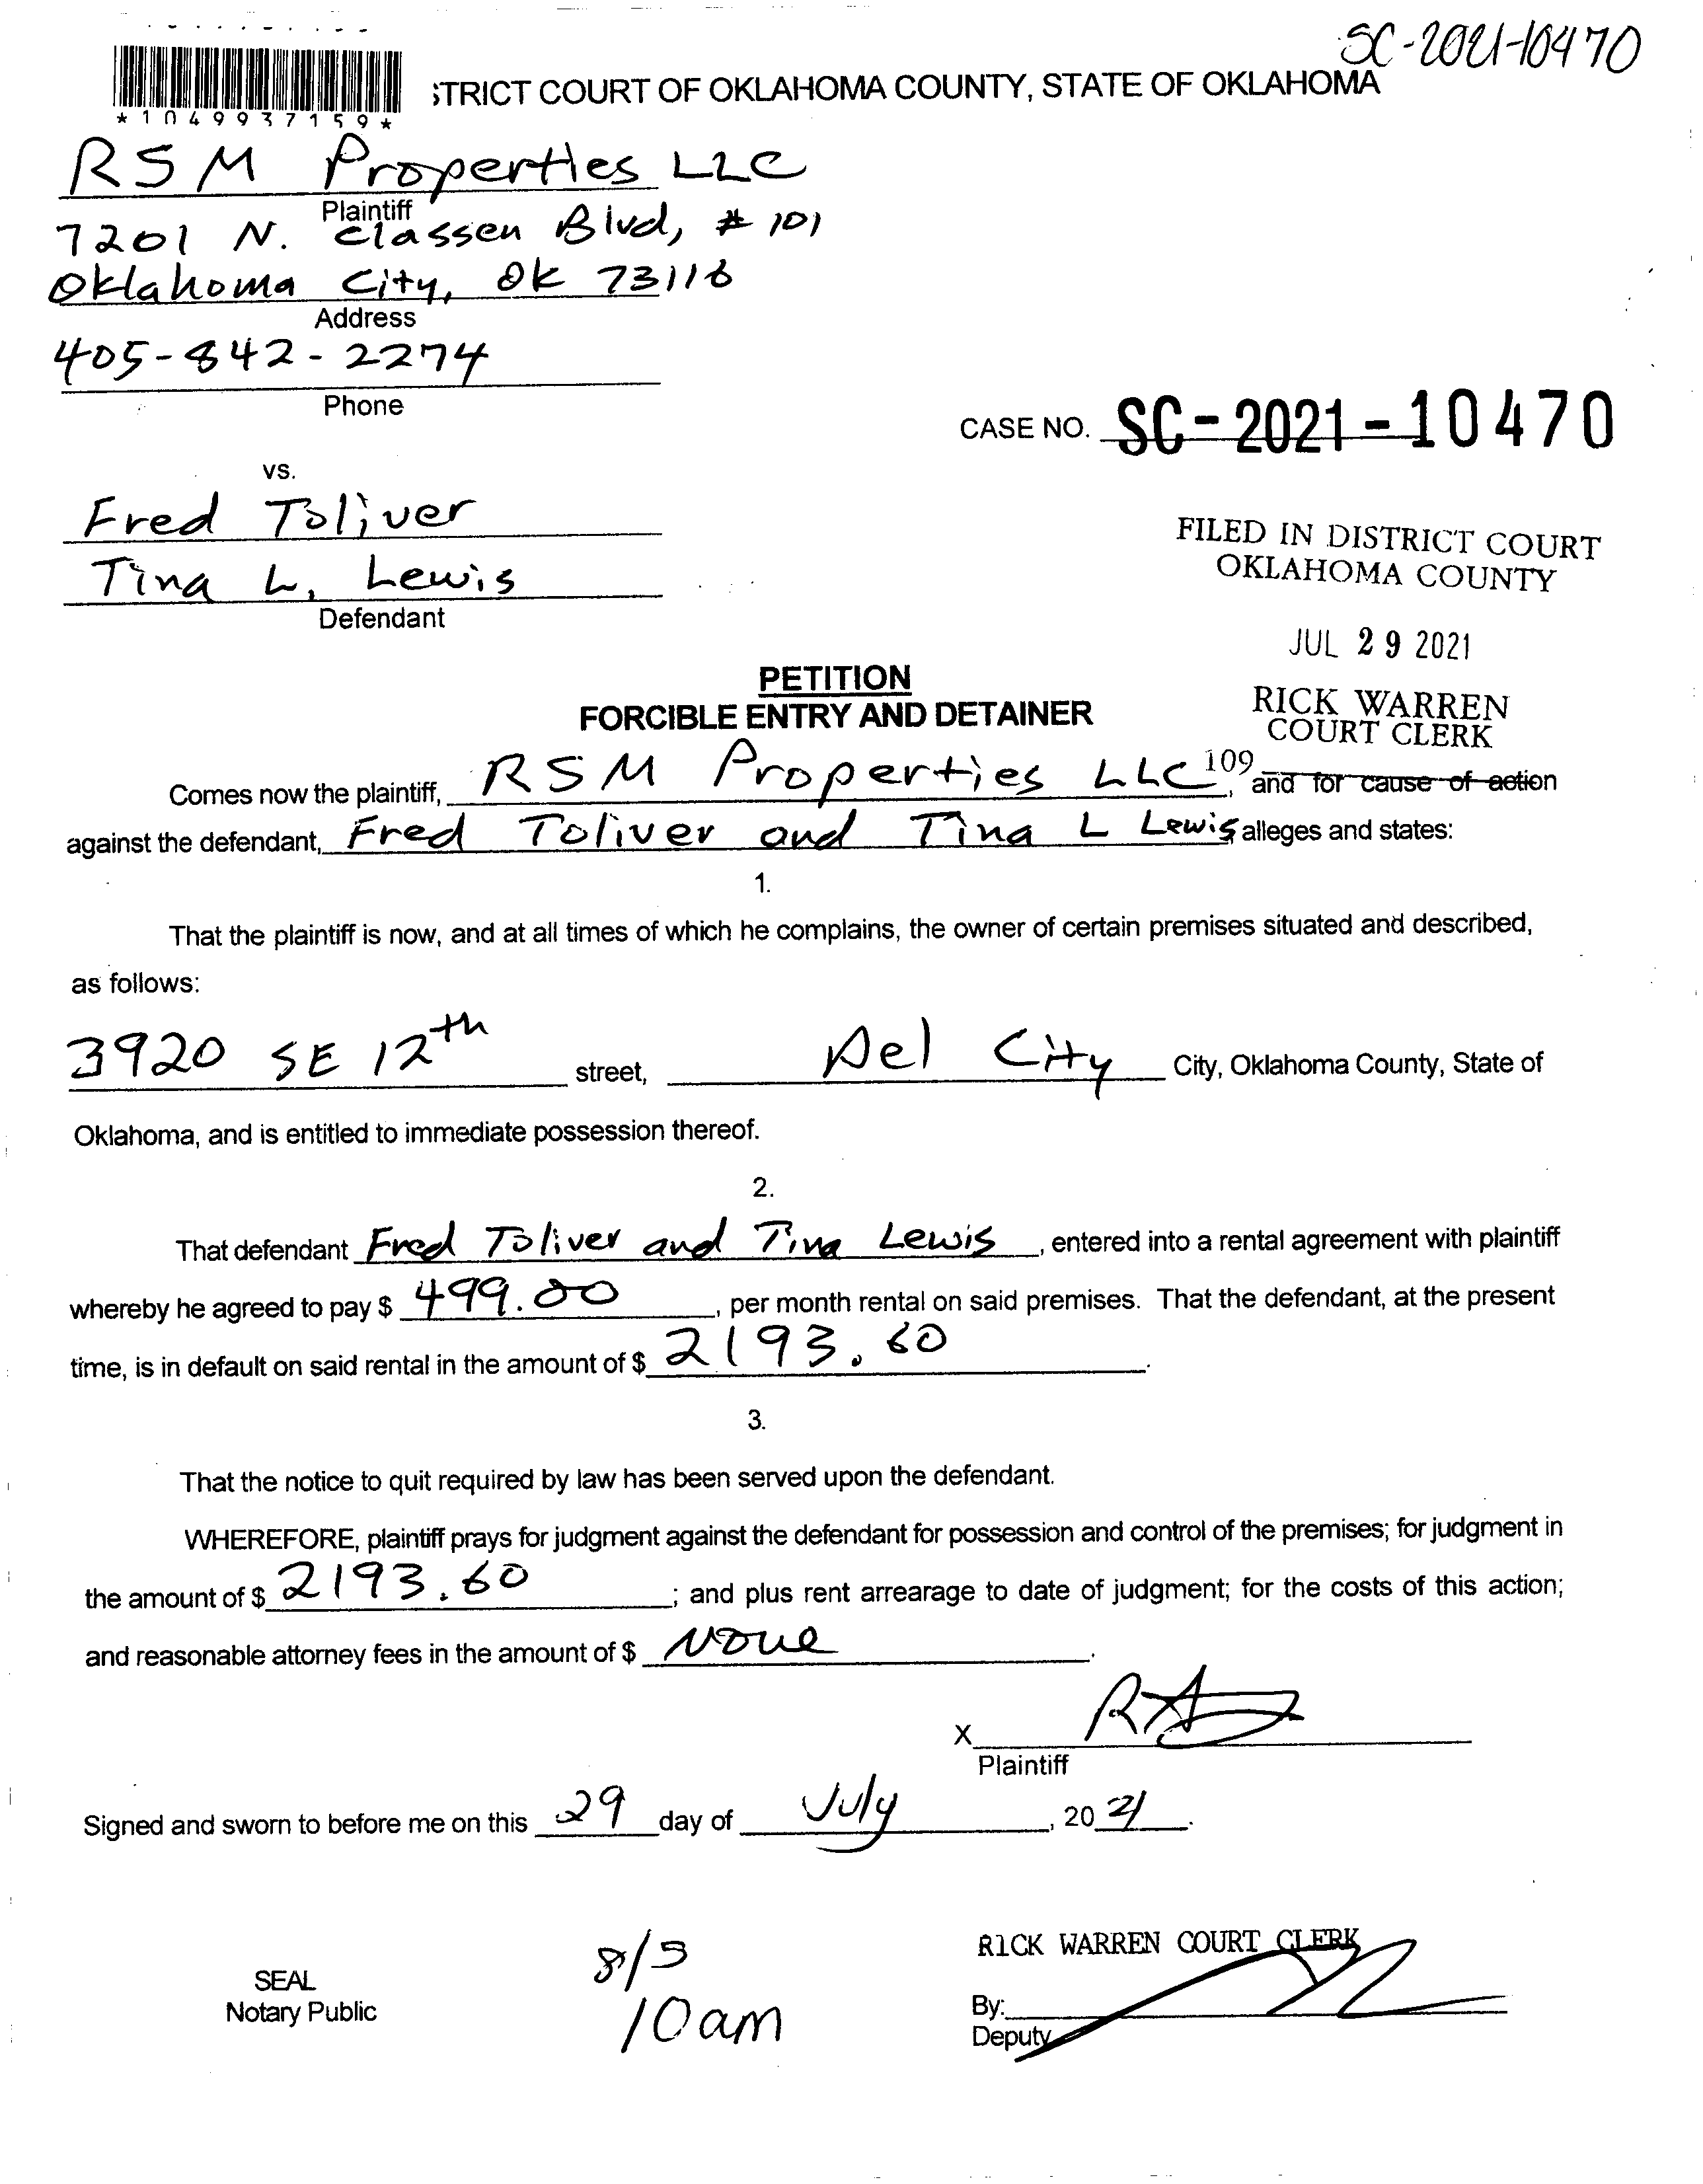 SC-2021-10470
STRICT COURT OF OKLAHOMA COUNTY, STATE OF OKLAHOMA
*1049937159*
RSM Properties LLC
Plaintiff
7201 N. Classen Blvd, # 101
Oklahoma City, OK 73116
Address
405-842-2274
Phone
CASE NO. SC-2021-10470
vs.
Fred Toliver
Tina L. Lewis
Defendant
FILED IN DISTRICT COURT
OKLAHOMA COUNTY
JUL 29 2021
RICK WARREN
COURT CLERK
109
PETITION
FORCIBLE ENTRY AND DETAINER
Comes now the plaintiff, RSM Properties LLC, and for cause of action
against the defendant, Fred Toliver and Tina L Lewis alleges and states:
1.
That the plaintiff is now, and at all times of which he complains, the owner of certain premises situated and described,
as follows:
3920 SE 12th street, Del City City, Oklahoma County, State of
Oklahoma, and is entitled to immediate possession thereof.
2.
That defendant Fred Toliver and Tina Lewis, entered into a rental agreement with plaintiff
whereby he agreed to pay $ 499.00, per month rental on said premises. That the defendant, at the present
time, is in default on said rental in the amount of $ 2193.60.
3.
That the notice to quit required by law has been served upon the defendant.
WHEREFORE, plaintiff prays for judgment against the defendant for possession and control of the premises; for judgment in
the amount of $ 2193.60; and plus rent arrearage to date of judgment; for the costs of this action;
and reasonable attorney fees in the amount of $ None.
X
Plaintiff
Signed and sworn to before me on this 29 day of July, 2021.
8/5
10am
SEAL
Notary Public
RICK WARREN COURT CLERK
By:
Deputy